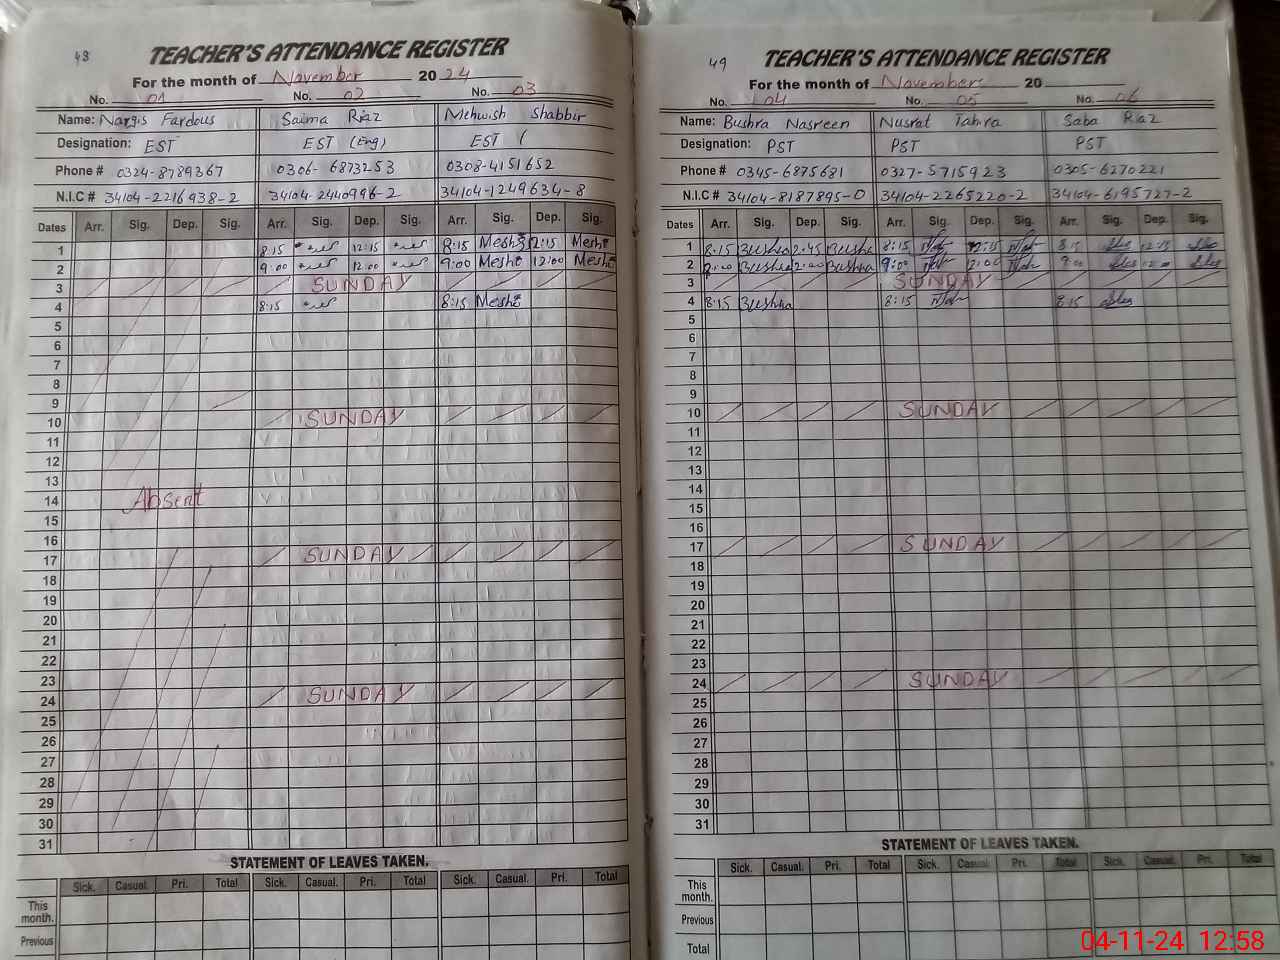 48
TEACHER'S ATTENDANCE REGISTER
For the month of November 2024
No. 01 No. 02 No. 03
Name: Nargis Fardous Saima Riaz Mehwish Shabbir
Designation: EST EST (Eng) EST (
Phone # 0324-8789367 0306-6873253 0308-4151652
N.I.C # 34104-2216938-2 34104-2440996-2 34104-1249634-8
Dates Arr. Sig. Dep. Sig. Arr. Sig. Dep. Sig. Arr. Sig. Dep. Sig.
1 8:15 12:15 8:15 12:15
2 9:00 12:00 9:00 12:00
3 SUNDAY
4 8:15 8:15
5
6
7
8
9
10 SUNDAY
11
12
13
14 Absent
15
16
17 SUNDAY
18
19
20
21
22
23
24 SUNDAY
25
26
27
28
29
30
31
STATEMENT OF LEAVES TAKEN.
Sick. Casual. Pri. Total Sick. Casual. Pri. Total Sick. Casual. Pri. Total
This month.
Previous
49
TEACHER'S ATTENDANCE REGISTER
For the month of November 20
No. 04 No. 05 No. 06
Name: Bushra Nasreen Nusrat Tahira Saba Riaz
Designation: PST PST PST
Phone # 0345-6875681 0327-5715923 0305-6270221
N.I.C # 34104-8187895-0 34104-2265220-2 34104-6195727-2
Dates Arr. Sig. Dep. Sig. Arr. Sig. Dep. Sig. Arr. Sig. Dep. Sig.
1 8:15 Bushra 2:45 Bushra 8:15 12:15 8:15 12:15
2 Bushra Bushra 9:00 12:00 9:00 12:00
3 SUNDAY
4 8:15 Bushra 8:15 8:15
5
6
7
8
9
10 SUNDAY
11
12
13
14
15
16
17 SUNDAY
18
19
20
21
22
23
24 SUNDAY
25
26
27
28
29
30
31
STATEMENT OF LEAVES TAKEN.
Sick. Casual. Pri. Total Sick. Casual. Pri. Total Sick. Casual. Pri. Total
This month.
Previous
Total
04-11-24 12:58